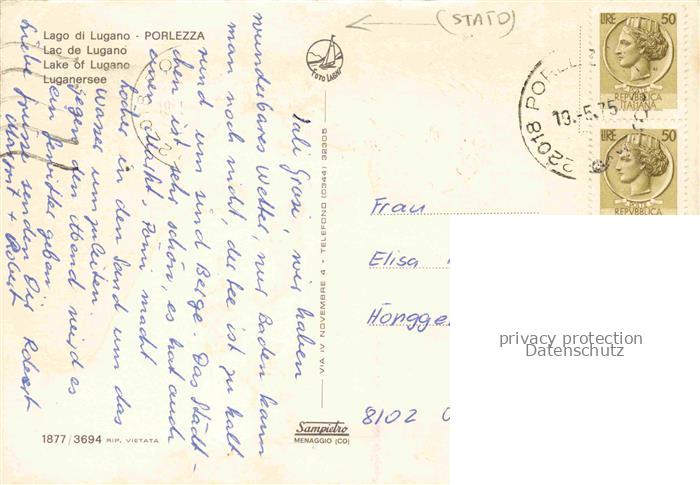 Lago di Lugano - PORLEZZA
Lac de Lugano
Lake of Lugano
Luganersee
(STATO)
FOTO LAGHI
LIRE 50
POSTE
REPVBBLICA
ITALIANA
LIRE 50
POSTE
REPVBBLICA
22018 PORLE
19.-5.75
wir haben
wunderbares Wetter, nur Baden kann
man noch nicht, der See ist zu kalt
rund um sind Berge. Das Städt-
chen ist sehr schön, es hat auch
einen Markt, macht
Löcher in den Sand um das
Wasser umzuleiten.
Gegen den Abend wird es
ein Gewitter geben
Liebe Grüsse senden Dir Robert
+ Robert
Frau
Elisa
Höngge
8102
VIA IV NOVEMBRE 4 - TELEFONO (0344) 32305
Sampietro
MENAGGIO (CO)
1877/3694 RIP. VIETATA
privacy protection
Datenschutz